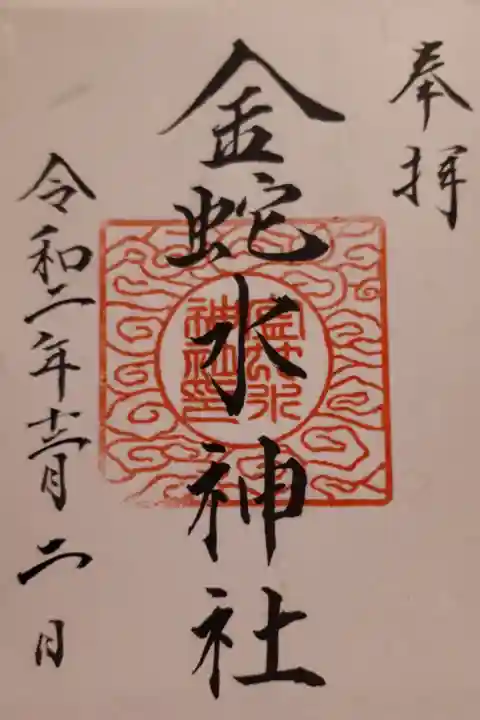 奉拝
金蛇水神社
金蛇水
神社印
令和二年十二月二日